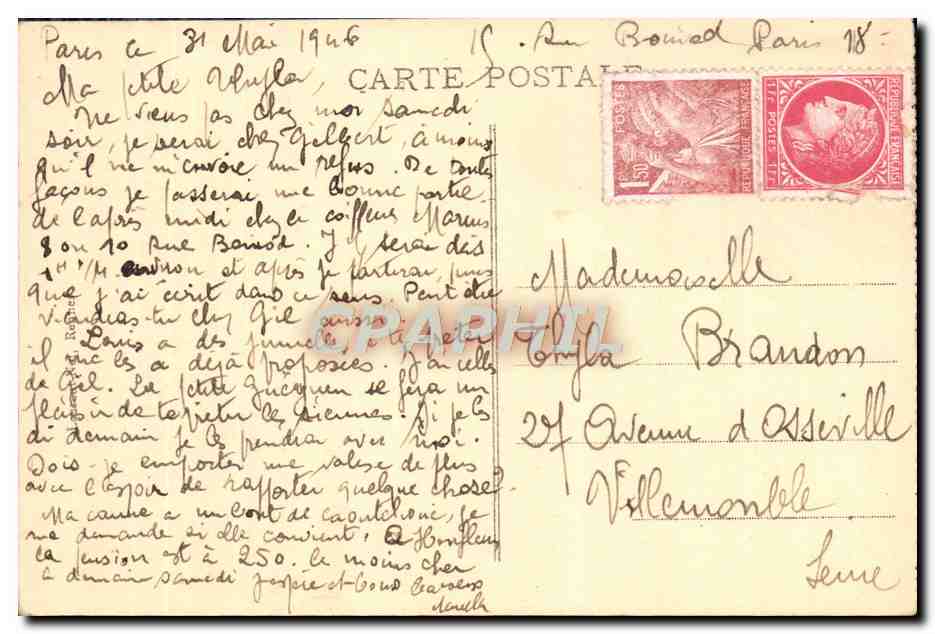 Paris ce 31 Mai 1946 15 . Rue Boinod Paris 18e
CARTE POSTALE
Ma petite Thyla,
Ne viens pas chez moi samedi
soir, je serai chez Gilbert, à moins
qu'il ne m'envoie un refus. De toutes
façons je passerai une bonne partie
de l'après midi chez le coiffeur Marius
8 ou 10 Rue Boinod. J'y serai dès
1H 1/4 environ et après je partirai, puis
que j'ai écrit dans ce sens. Peut être
viendras-tu chez Gil aussi.
Louis a des jumelles à te prêter
il me les a déjà proposées. J'ai celles
de Gil. La petite se fera un
plaisir de te prêter les siennes. Si je les
ai demain je les prendrai avec moi.
Dois-je emporter une valise de plus
avec l'espoir de rapporter quelque chose?
Ma canne a un bout de caoutchouc, je
me demande si elle convient. A Honfleur
la pension est à 250. le moins cher
à demain samedi j'espère et bons baisers
POSTES
1F50
REPUBLIQUE FRANÇAISE
REPUBLIQUE FRANÇAISE
1F POSTES 1F
Mademoiselle
Thyla Brandon
27 Avenue d'Osseville
Villemomble
Seine
CPAPHIL